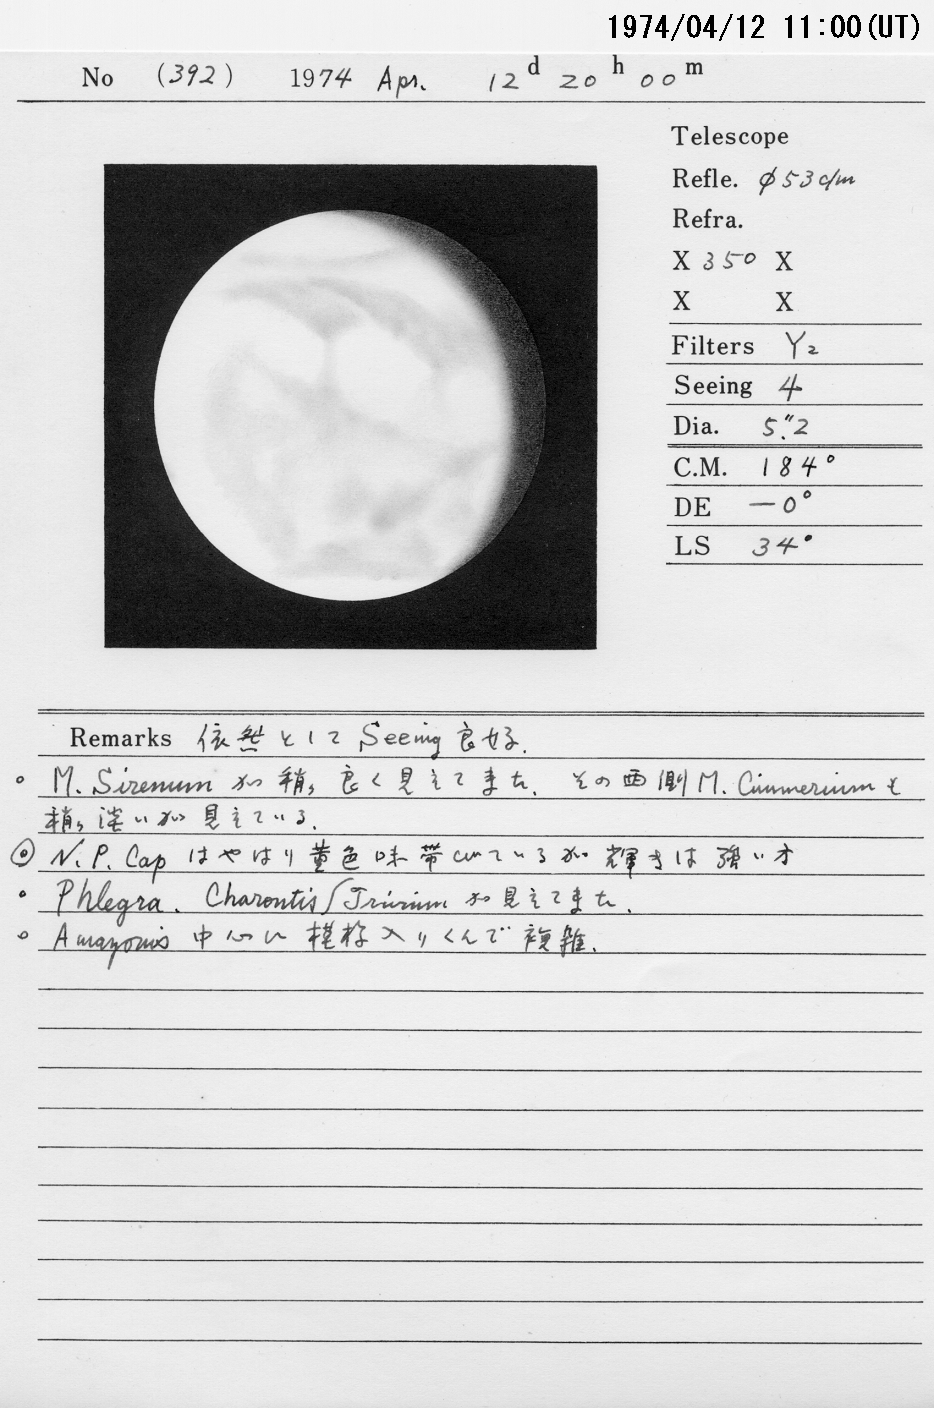 1974/04/12 11:00(UT)
No (392) 1974 Apr. 12d 20h 00m
Telescope
Refle. φ53c/m
Refra.
X 350 X
X X
Filters Y2
Seeing 4
Dia. 5."2
C.M. 184°
DE -0°
LS 34°
Remarks 依然として Seeing 良好.
○ M. Sirenum が稍々良く見えてきた. その西側 M. Cimmerium も
稍々淡いが見えている.
◎ N. P. Cap はやはり黄色味帯びているが輝きは強い方
○ Phlegra. Charontis/Trivium が見えてきた.
○ Amazonis 中心に模様入りくんで複雑.